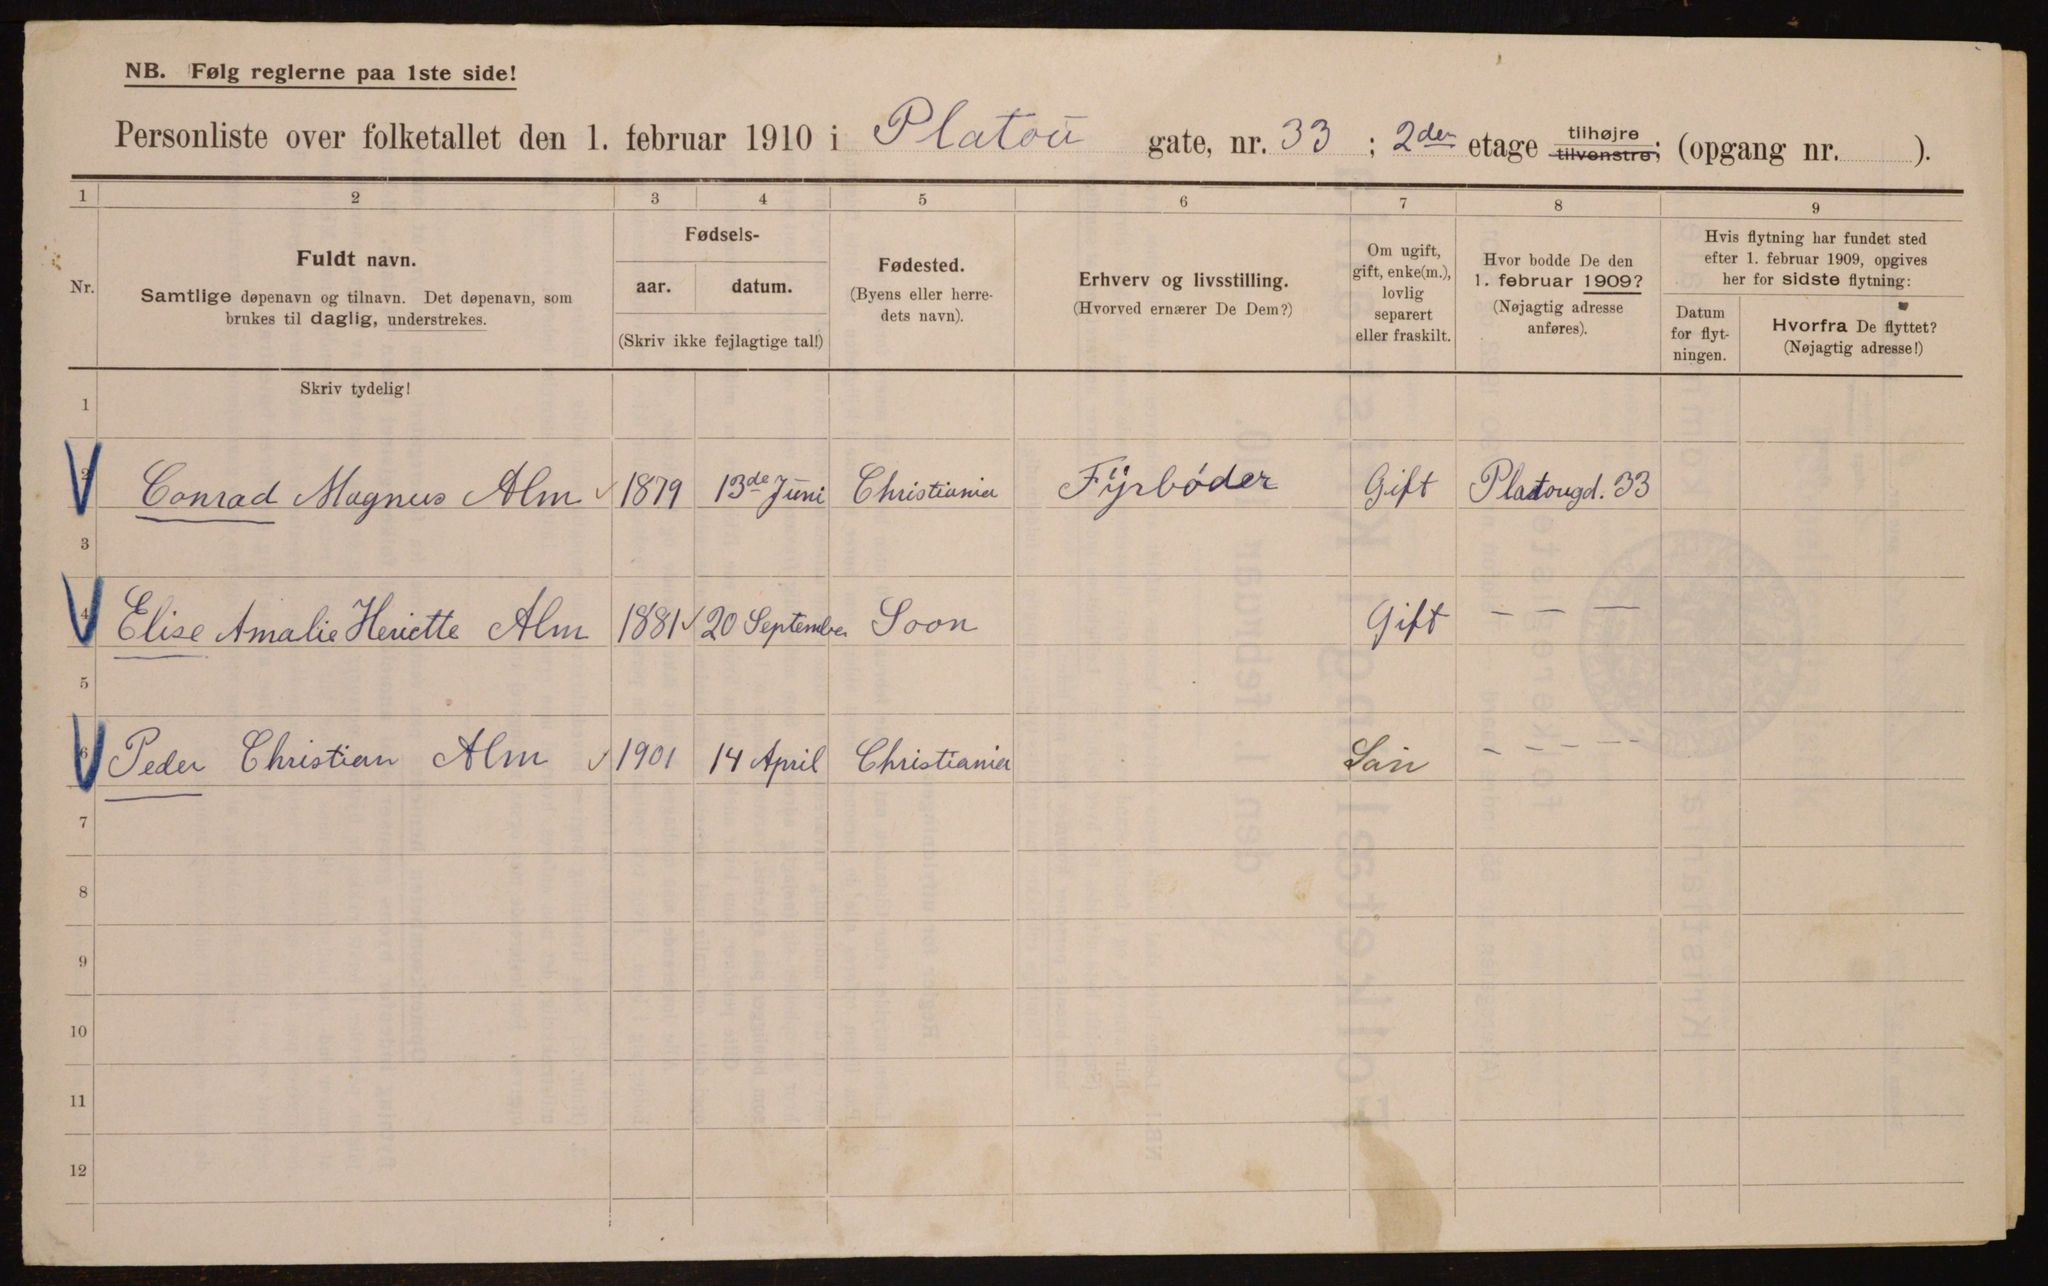 NB. Følg reglerne paa 1ste side!
Personliste over folketallet den 1. februar 1910 i Platou gate, nr. 33 ; 2den etage tilhøjre tilvenstre; (opgang nr. ).
1 2 3 4 5 6 7 8 9
Nr.
Fuldt navn.
Samtlige døpenavn og tilnavn. Det døpenavn, som
brukes til daglig, understrekes.
Fødsels-
aar. datum.
(Skriv ikke fejlagtige tal!)
Fødested.
(Byens eller herre-
dets navn).
Erhverv og livsstilling.
(Hvorved ernærer De Dem?)
Om ugift,
gift, enke(m.),
lovlig
separert
eller fraskilt.
Hvor bodde De den
1. februar 1909?
(Nøjagtig adresse
anføres).
Hvis flytning har fundet sted
efter 1. februar 1909, opgives
her for sidste flytning:
Datum
for flyt-
ningen.
Hvorfra De flyttet?
(Nøjagtig adresse!)
Skriv tydelig!
1
2 Conrad Magnus Alm 1879 13de Juni Christiania Fÿrbøder Gift Platougd. 33
3
4 Elise Amalie Heriette Alm 1881 20 September Soon Gift — — —
5
6 Peder Christian Alm 1901 14 April Christiania Sön — — — —
7
8
9
10
11
12